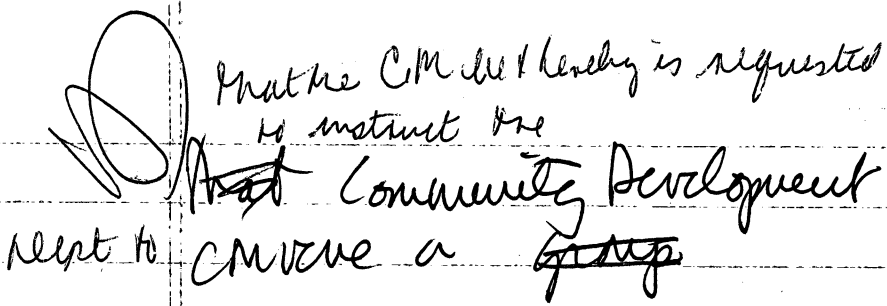 that the CM be & hereby is requested
to instruct the
Community Development
Dept to convene a group